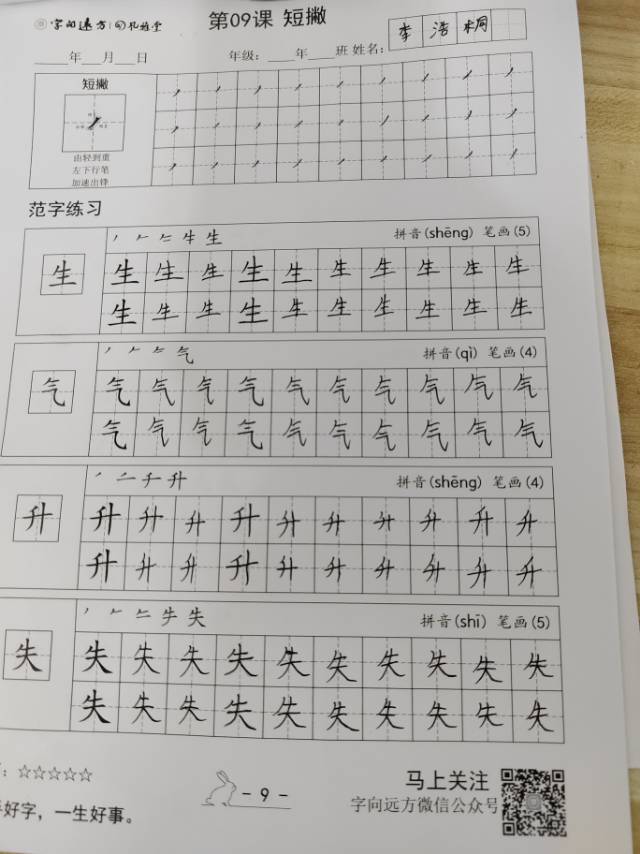 字向远方 孔雅堂 第09课 短撇
年 月 日 年级： 年 班 姓名： 李浩桐
短撇
由轻到重
左下行笔
加速出锋
范字练习
生 拼音(shēng) 笔画(5)
生 生 生 生 生 生 生 生 生 生 生
生 生 生 生 生 生 生 生 生 生
气 拼音(qì) 笔画(4)
气 气 气 气 气 气 气 气 气 气 气
气 气 气 气 气 气 气 气 气 气
升 拼音(shēng) 笔画(4)
升 升 升 升 升 升 升 升 升 升 升
升 升 升 升 升 升 升 升 升 升
失 拼音(shī) 笔画(5)
失 失 失 失 失 失 失 失 失 失 失
失 失 失 失 失 失 失 失 失 失
：☆☆☆☆☆ 马上关注
- 9 - 字向远方微信公众号
好字，一生好事。